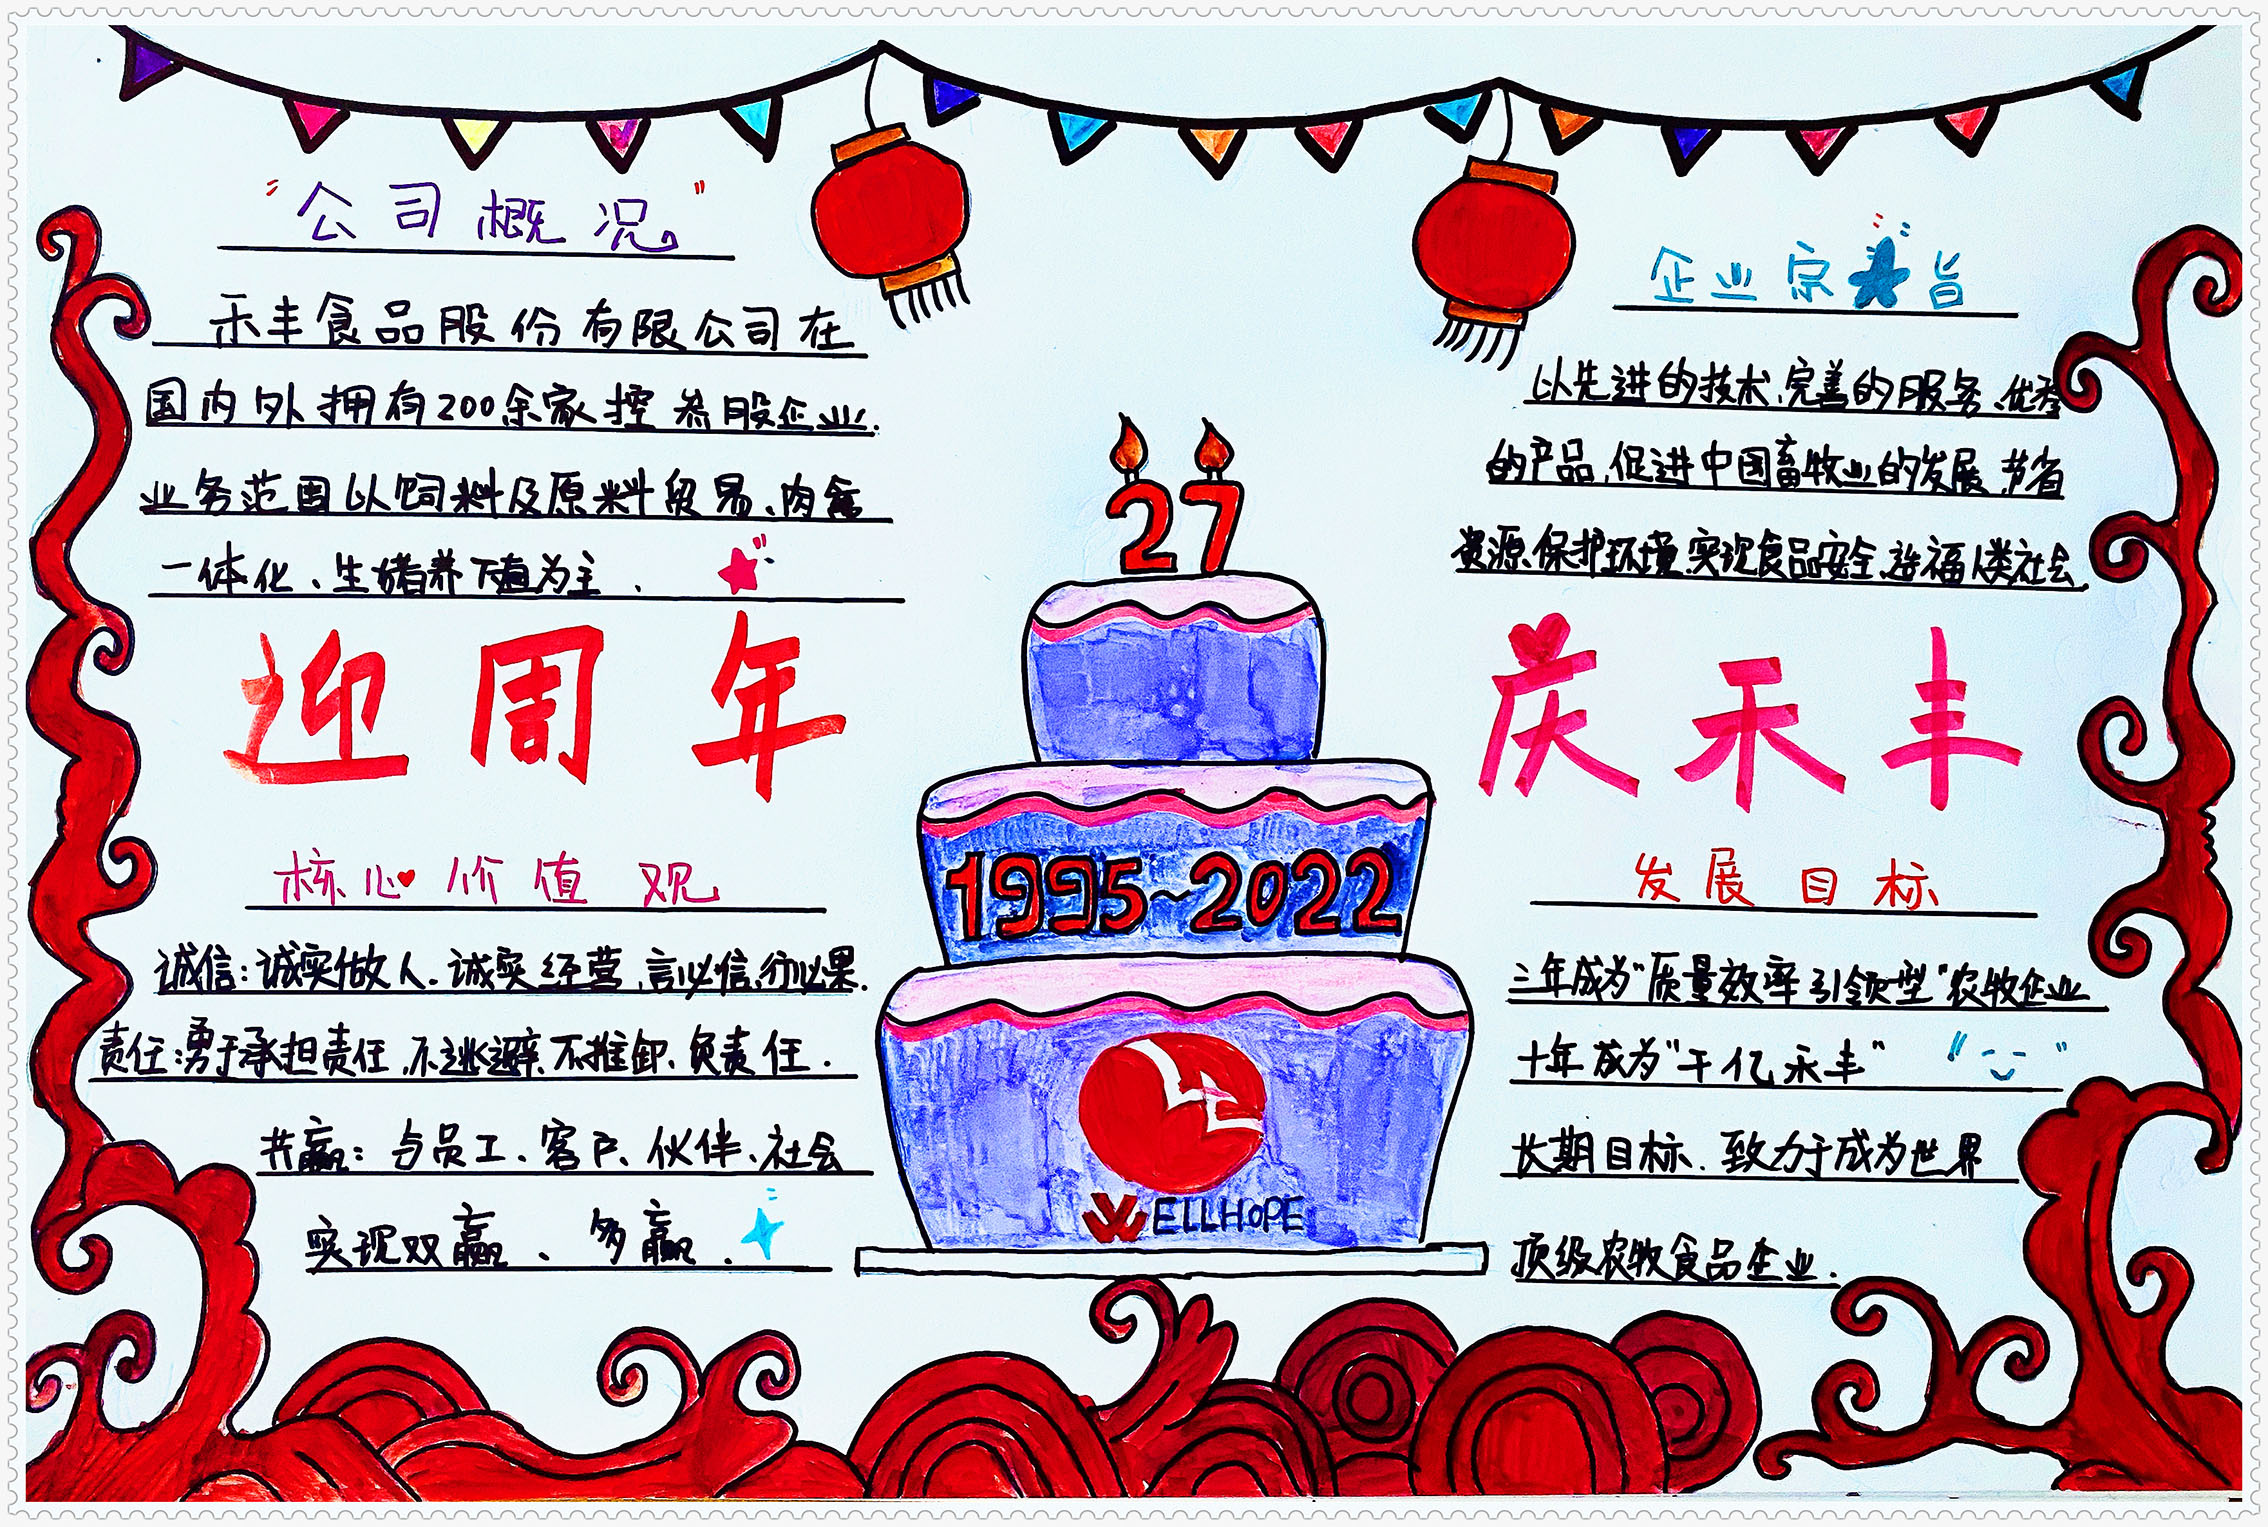 “公司概况”
禾丰食品股份有限公司在
国内外拥有200余家控参股企业.
业务范围以饲料及原料贸易、肉禽
一体化、生猪养殖为主.
迎周年
核心价值观
诚信:诚实做人.诚实经营,言必信,行必果.
责任:勇于承担责任,不逃避、不推卸、负责任.
共赢:与员工、客户、伙伴、社会
实现双赢、多赢.
27
1995~2022
WELLHOPE
企业宗旨
以先进的技术、完善的服务、优秀
的产品,促进中国畜牧业的发展,节省
资源、保护环境、实现食品安全,造福人类社会.
庆禾丰
发展目标
三年成为“质量效率引领型”农牧企业
十年成为“千亿禾丰”
长期目标.致力于成为世界
顶级农牧食品企业.